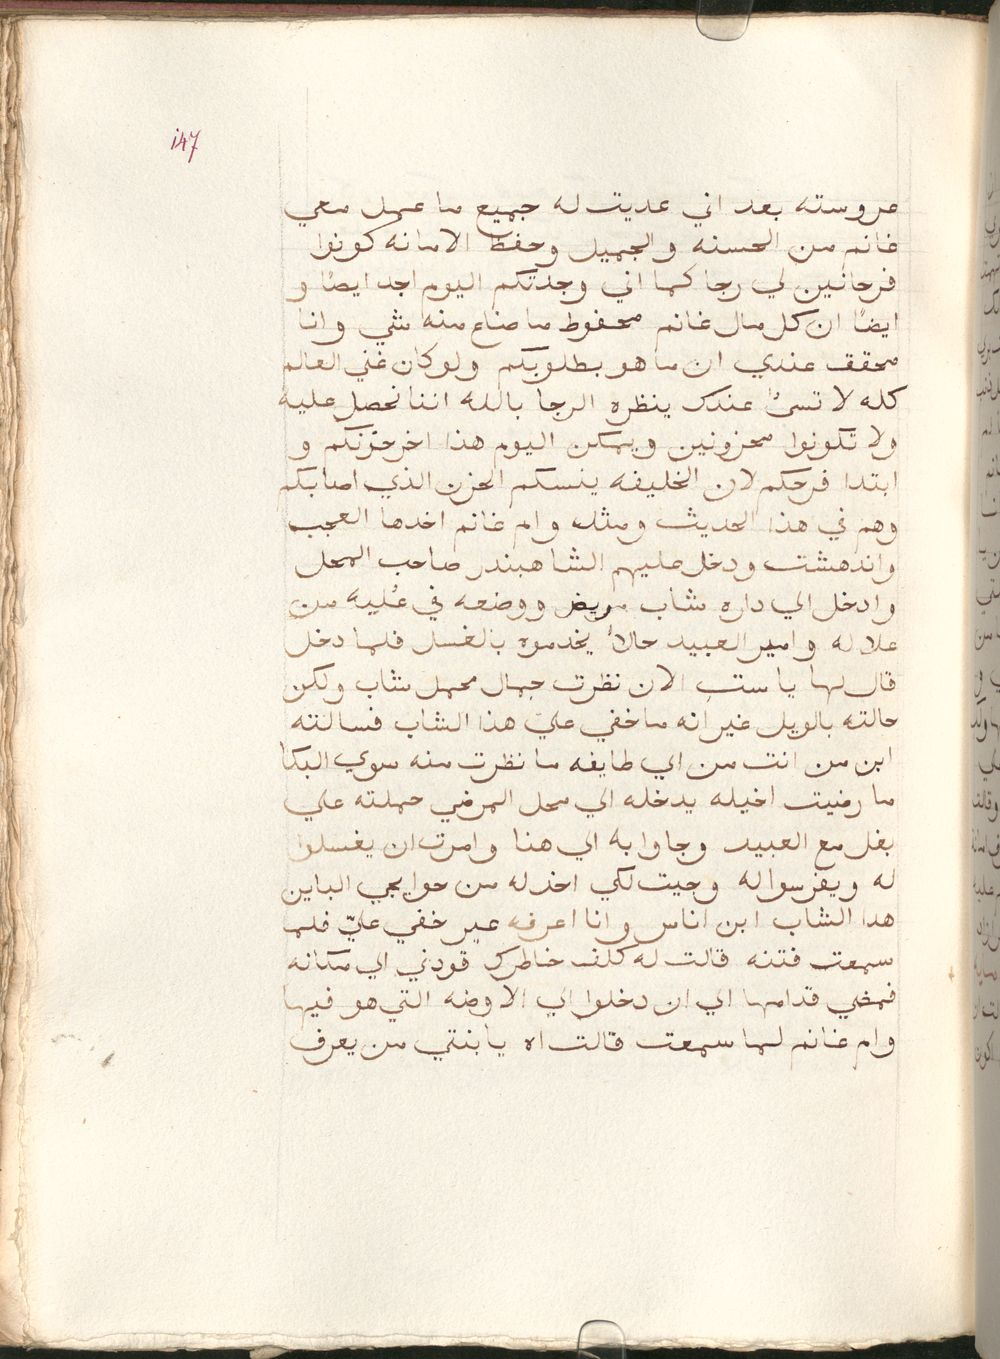 147
عروسته بعد اني عديت له جميع ما عمل معي
غانم من الحسنه والجميل وحفظ الامانه كونوا
فرحانين لي رجا كما اني وجدتكم اليوم اجد ايضًا و
ايضًا ان كل مال غانم محفوظ ما ضاع منه شي وانا
محقق عندي ان ما هو بطلوبكم ولو كان غني العالم
كله لا تسئ عندك ينظره الرجا بالله اننا نحصل عليه
ولا تكونوا محزونين ويمكن اليوم هذا اخر حزنكم و
ابتدا فرحكم لان الخليفه ينسكم الحزن الذي اصابكم
وهم في هذا الحديث ومثله وام غانم اخدها العجب
واندهشت ودخل عليهم الشاهبندر صاحب المحل
وادخل الي داره شاب مريض ووضعه في عُليه من
علاله وامير العبيد حالاً يخدموه بالغسل فلما دخل
قال لها يا ست الان نظرت جمال محمل شاب ولكن
حالته بالويل غير انه ما خفي علي هذا الشاب فسالته
ابن من انت من اي طايفه ما نظرت منه سوي البكا
ما رضيت اخيله يدخله الي محل المرضي حملته علي
بغل مع العبيد وجاوا به الي هنا وامرت ان يغسلوا
له ويفرسوا له وجيت لكي اخد له من حوايجي الباين
هدا الشاب ابن اناس وانا اعرفه غير خفي عليّ فلما
سمعت فتنه قالت له كلف خاطرك قودني الي مكانه
فمضي قدامها الي ان دخلوا الي الاوضه التي هو فيها
وام غانم لما سمعت قالت اه يا بنتي من يعرف